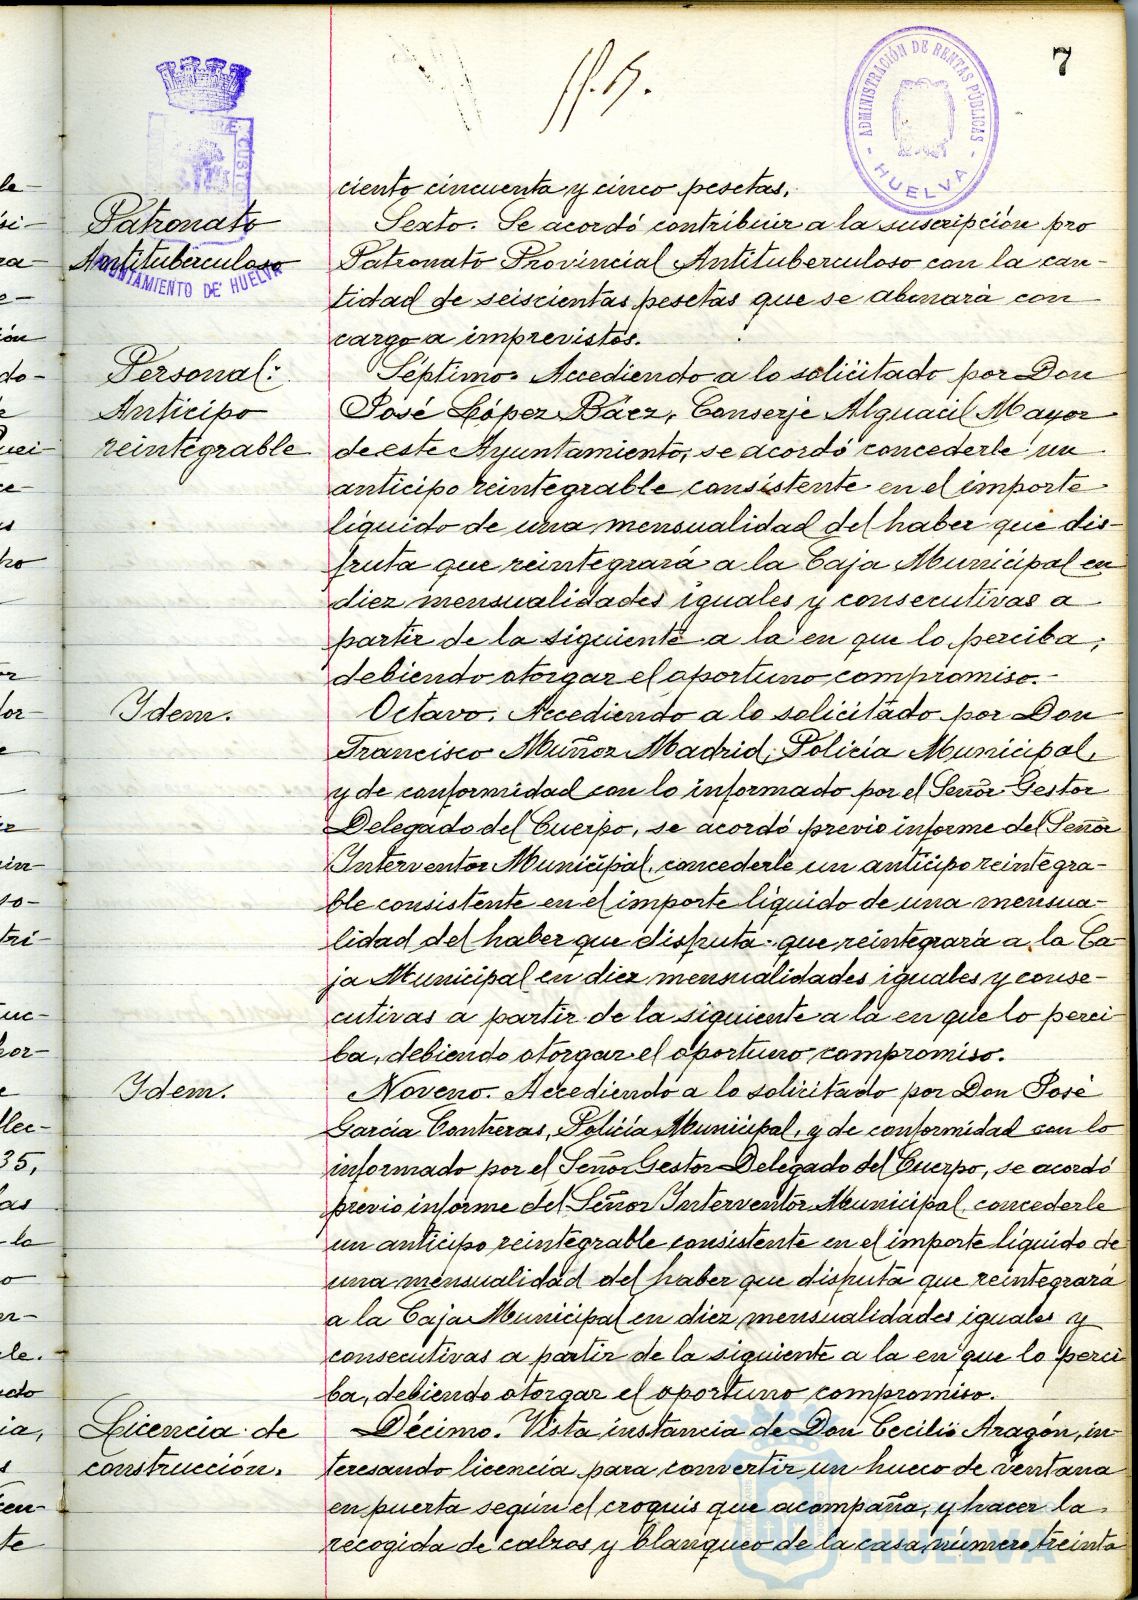 7
ADMINISTRACIÓN DE RENTAS PÚBLICAS
HUELVA
AYUNTAMIENTO DE HUELVA
ciento cincuenta y cinco pesetas.
Patronato
Antituberculoso
Sexto. Se acordó contribuir a la suscripción pro
Patronato Provincial Antituberculoso con la can-
tidad de seiscientas pesetas que se abonará con
cargo a imprevistos.
Personal:
Anticipo
reintegrable
Séptimo. Accediendo a lo solicitado por Don
José López Báez, Conserje Alguacil Mayor
de este Ayuntamiento, se acordó concederle un
anticipo reintegrable consistente en el importe
líquido de una mensualidad del haber que dis-
fruta que reintegrará a la Caja Municipal en
diez mensualidades iguales y consecutivas a
partir de la siguiente a la en que lo perciba,
debiendo otorgar el oportuno compromiso.-
Ydem.
Octavo. Accediendo a lo solicitado por Don
Francisco Muñoz Madrid, Policía Municipal,
y de conformidad con lo informado por el Señor Gestor
Delegado del Cuerpo, se acordó previo informe del Señor
Interventor Municipal, concederle un anticipo reintegra-
ble consistente en el importe líquido de una mensua-
lidad del haber que disfruta que reintegrará a la Ca-
ja Municipal en diez mensualidades iguales y conse-
cutivas a partir de la siguiente a la en que lo perci-
ba, debiendo otorgar el oportuno compromiso.
Ydem.
Noveno. Accediendo a lo solicitado por Don José
García Contreras, Policía Municipal, y de conformidad con lo
informado por el Señor Gestor Delegado del Cuerpo, se acordó
previo informe del Señor Interventor Municipal, concederle
un anticipo reintegrable consistente en el importe líquido de
una mensualidad del haber que disfruta que reintegrará
a la Caja Municipal en diez mensualidades iguales y
consecutivas a partir de la siguiente a la en que lo perci
ba, debiendo otorgar el oportuno compromiso.
Licencia de
construcción.
Décimo. Vista instancia de Don Cecilio Aragón, in-
teresando licencia para convertir un hueco de ventana
en puerta según el croquis que acompaña, y hacer la
recogida de calzos y blanqueo de la casa número treinta
HUELVA